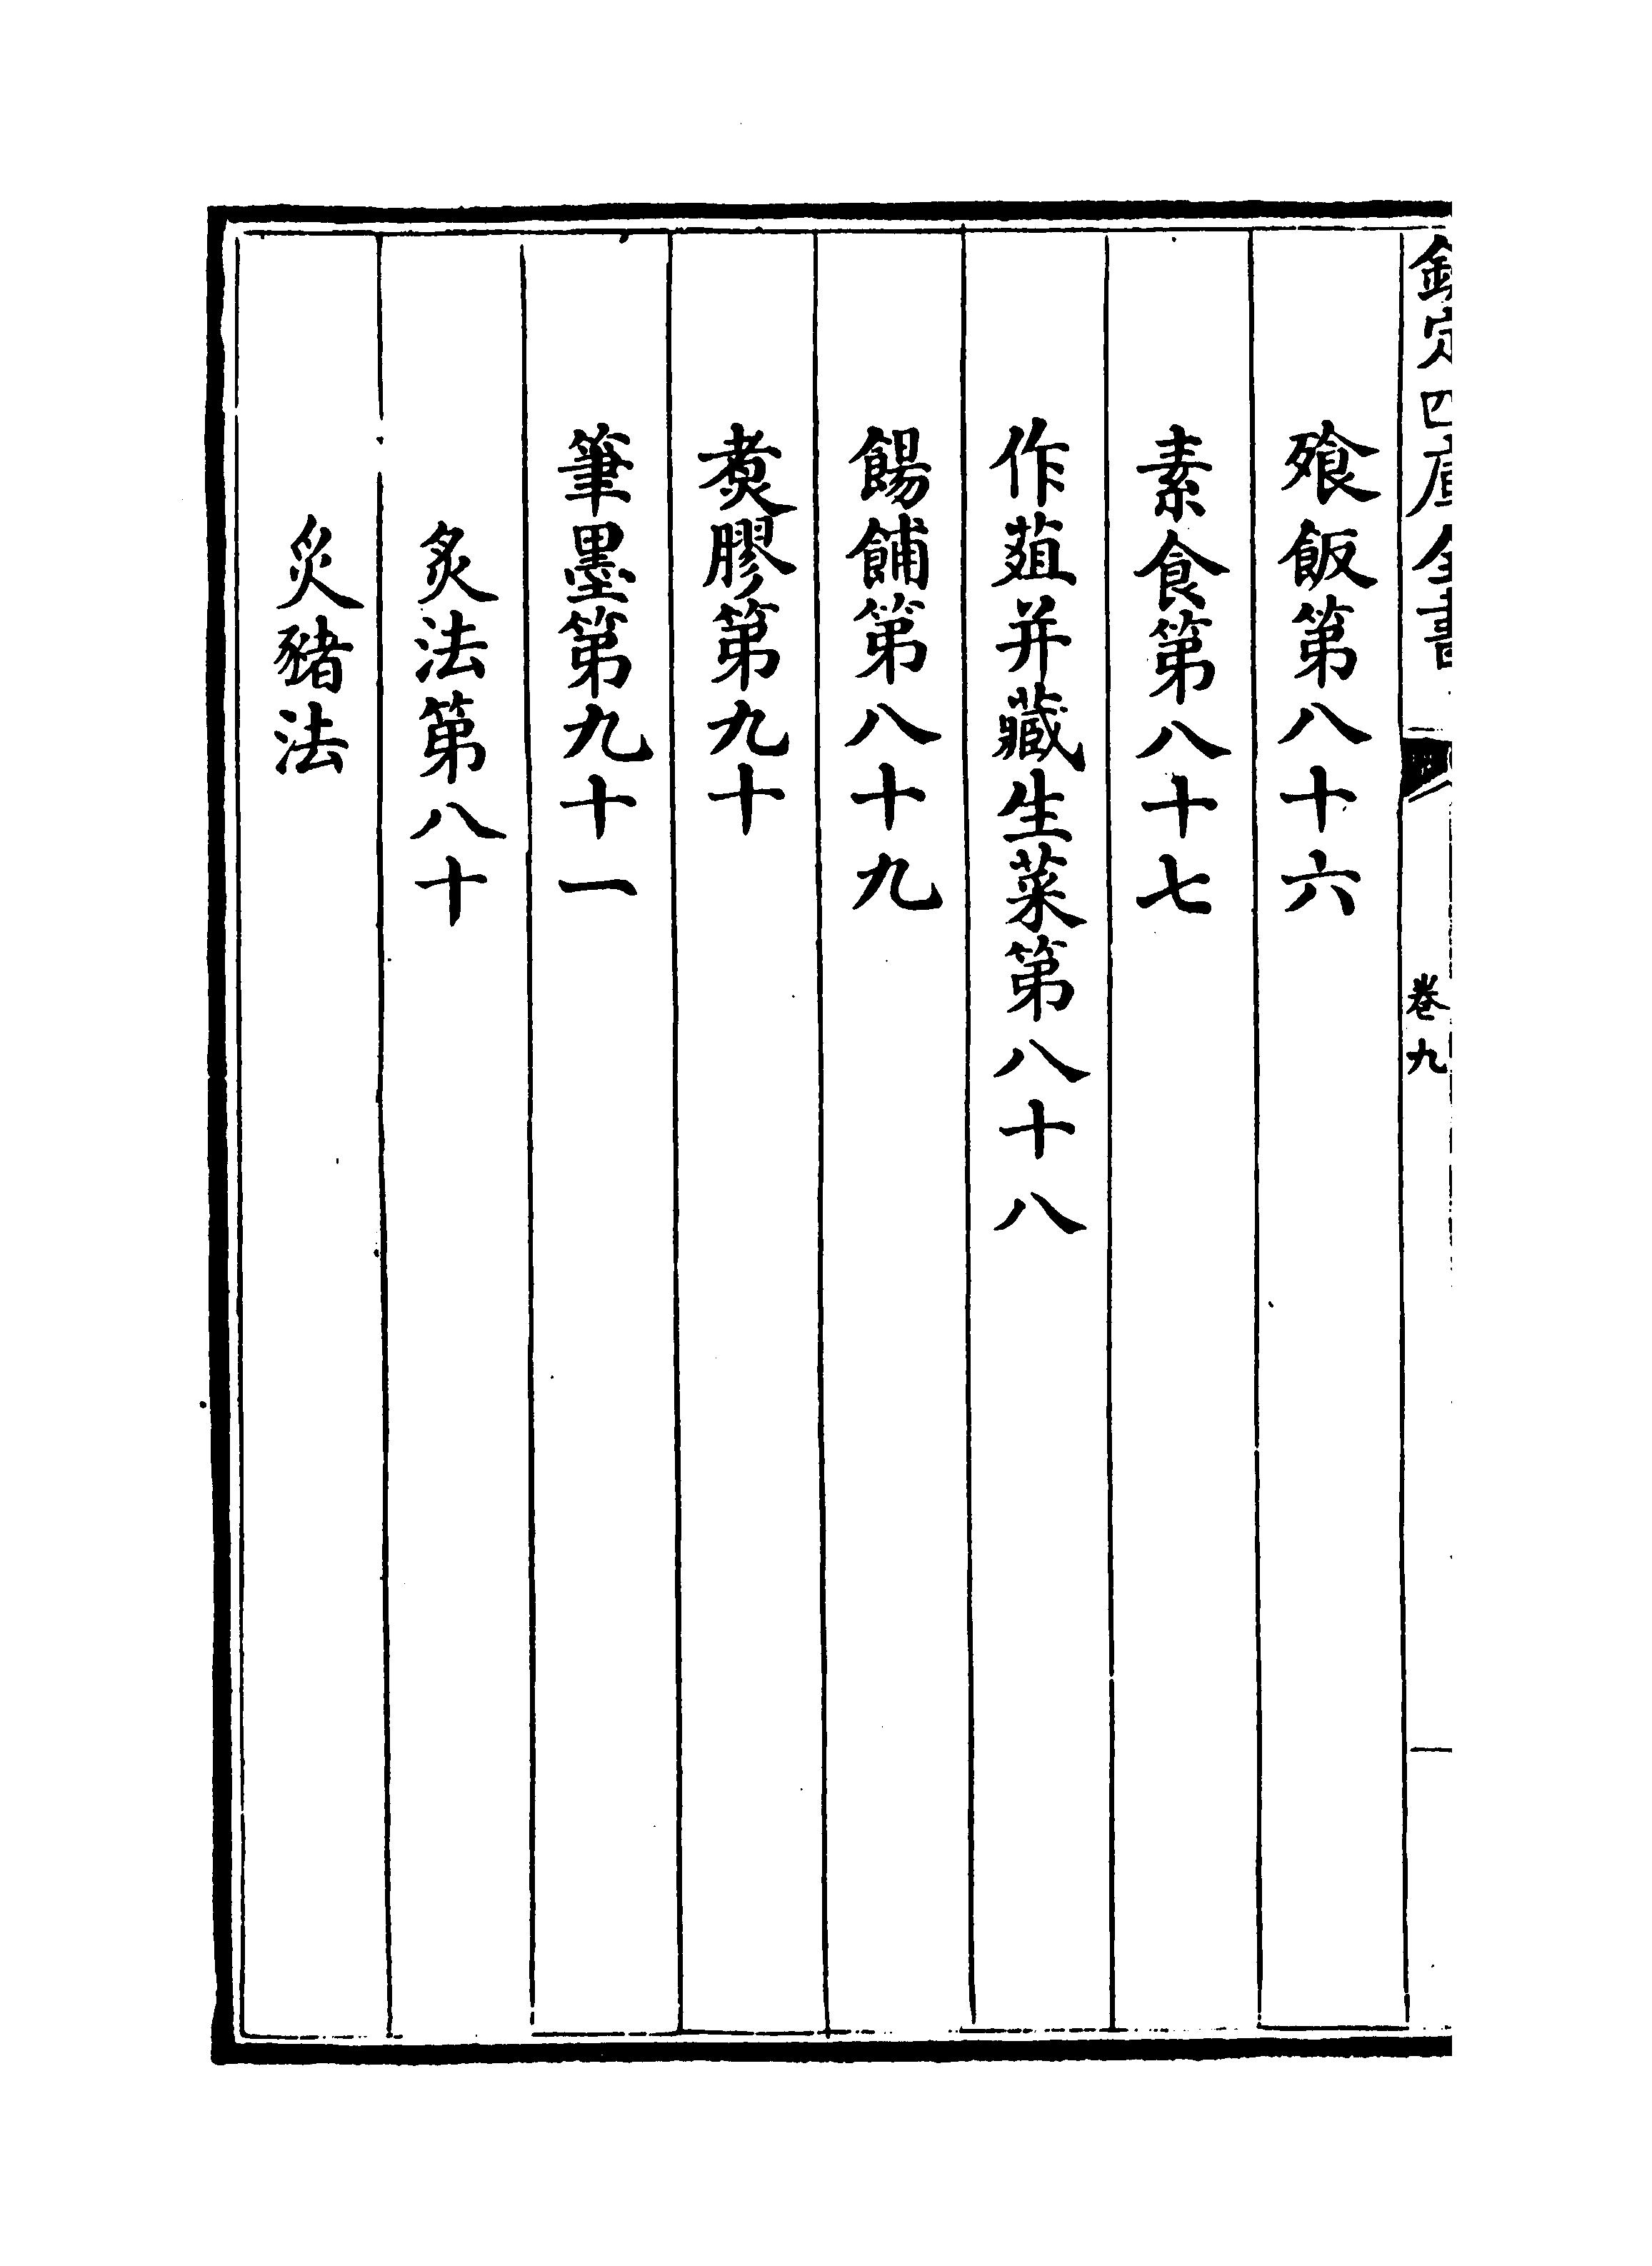 欽定四庫全書
卷九
飱飯第八十六
素食第八十七
作葅并藏生菜第八十八
餳餔第八十九
煑膠第九十
筆墨第九十一
炙法第八十
炙豬法